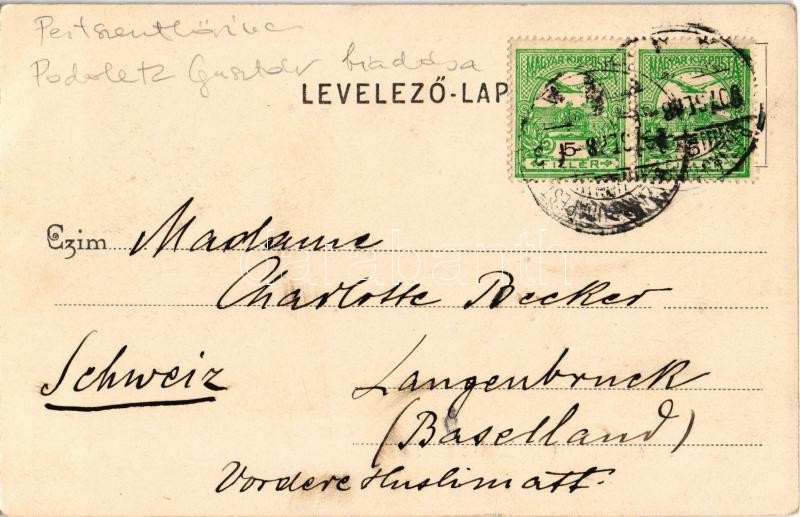 Pestszentlőrinc
Podoletz Gusztáv kiadása
LEVELEZŐ-LAP
MAGYAR KIR. POSTA
MAGYAR KIR. POSTA
5
5
FILLÉR
Czim Madame
Charlotte Becker
Schweiz Langenbruck
(Baselland)
Vordere Huslimatt.
darabanth